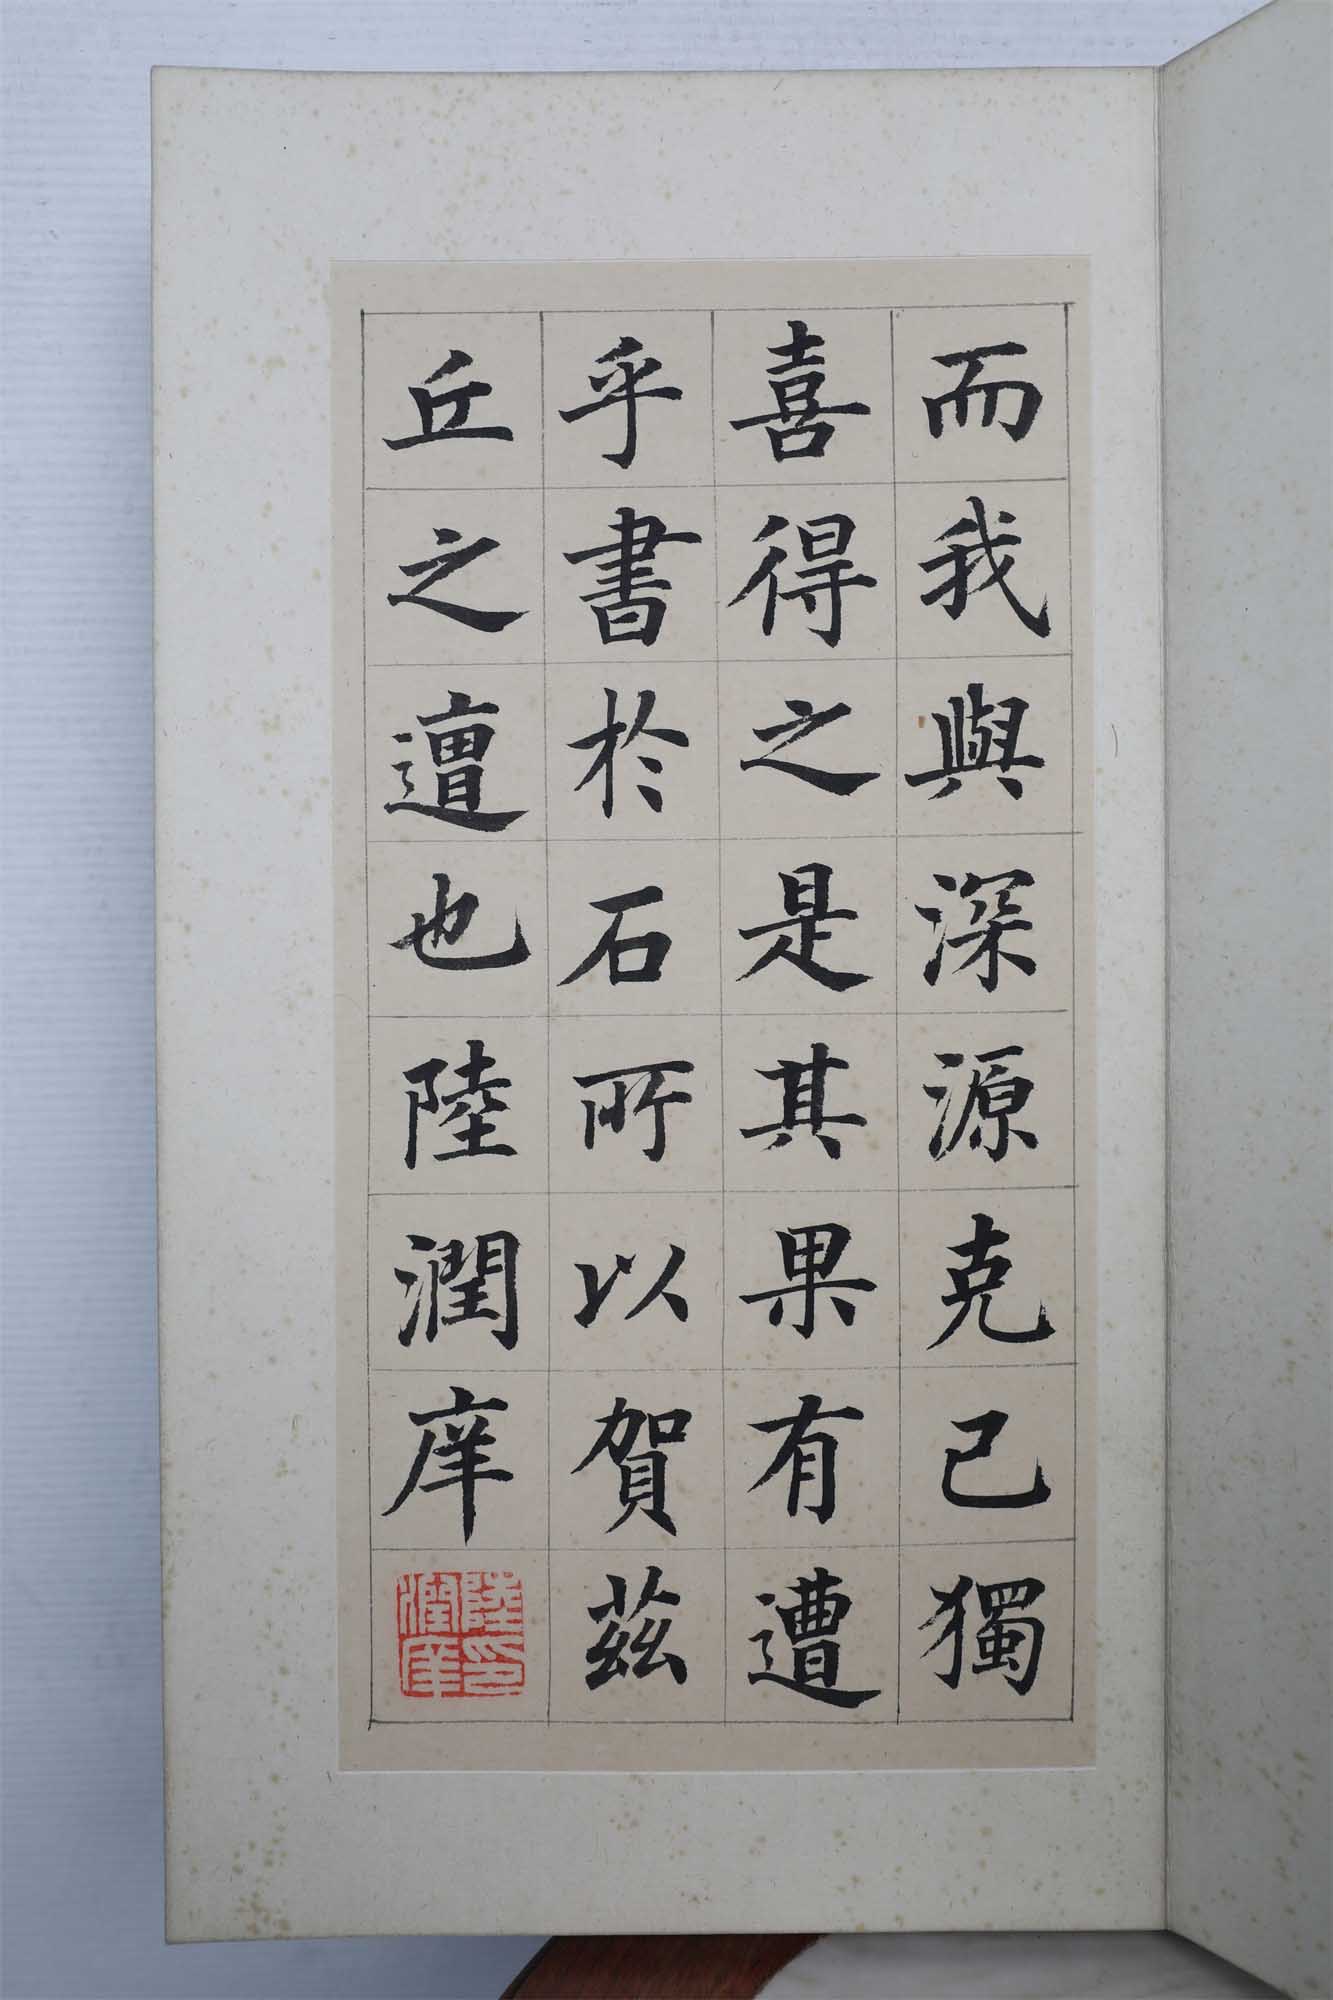 而我與深源克己獨
喜得之是其果有遭
乎書於石所以賀茲
丘之遭也陸潤庠
陸潤庠印